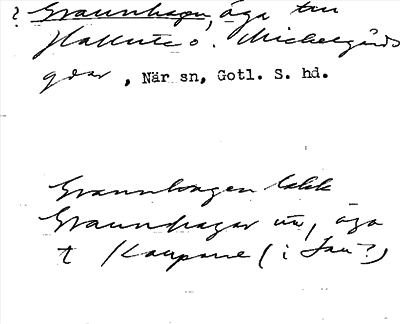 ? Graunhagen, äga tom
Hallute o. Mickelgårds
gdar, När sn, Gotl. S. hd.
Graunhagen
Graunhagar un, äga
t Kaupane (i Lau?)